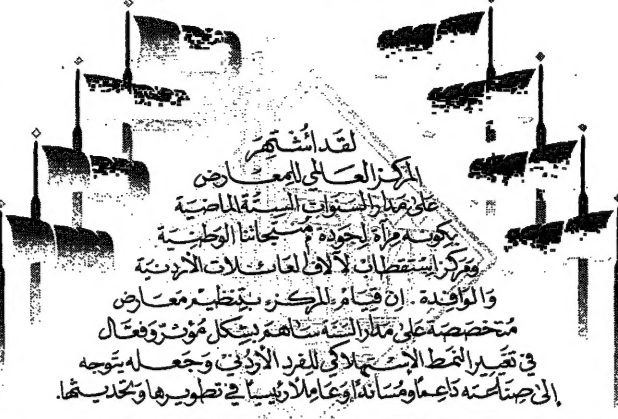 لقد اشتهر
المركز العالمي للمعارض
على مدار السنوات الستة الماضية
بكونه مرآة لجودة منتجاتنا الوطنية
ومركز استقطاب لآلاف العائلات الأردنية
والوافدة . ان قيام المركز بتنظيم معارض
متخصصة على مدار السنة ساهم بشكل مؤثر وفعال
في تغيير النمط الإستهلاكي للفرد الأردني وجعله يتوجه
إلى صناعته داعماً ومسانداً وعاملاً رئيسياً في تطويرها وتحديثها.